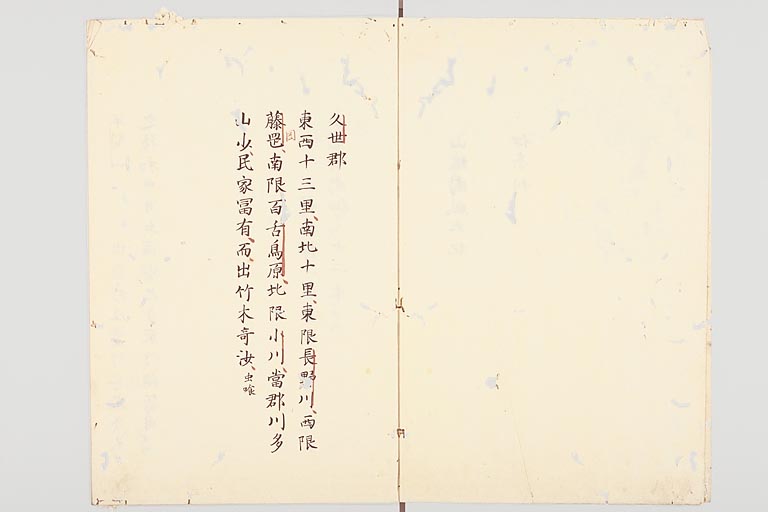 久世郡
東西十三里南北十里東限長野川西限
藤罡南限百舌鳥原北限小川當郡川多
山少民家冨有而出竹木奇汝虫喰